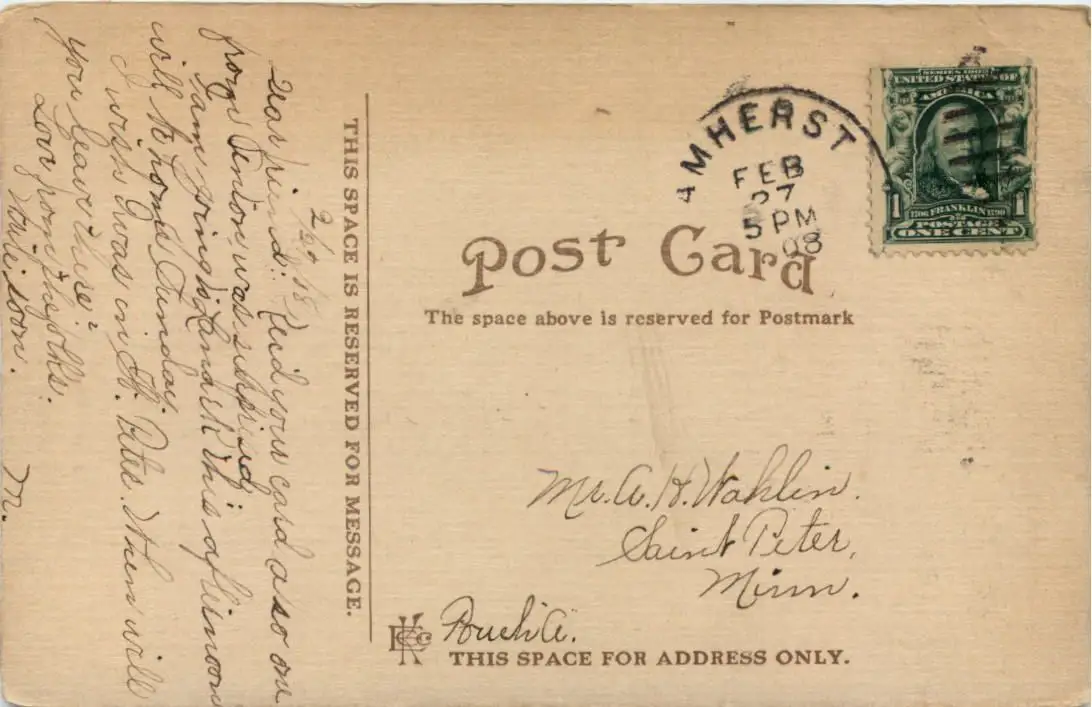 2/27/08
Dear friend: Recd your card also one
from Fendon, was suprised:
I am going to Lanark this afternoon
will be home Sunday.
I wish I was in St. Peter. When will
you leave there?
Love from the folks.
Write soon. M.
THIS SPACE IS RESERVED FOR MESSAGE.
AMHERST
FEB
27
5 PM
08
SERIES 1902
UNITED STATES OF
AMERICA
1 1706 FRANKLIN 1790 1
POSTAGE
ONE CENT
Post Card
The space above is reserved for Postmark
Mr. A. H. Wahlin.
Saint Peter,
Minn.
THIS SPACE FOR ADDRESS ONLY.